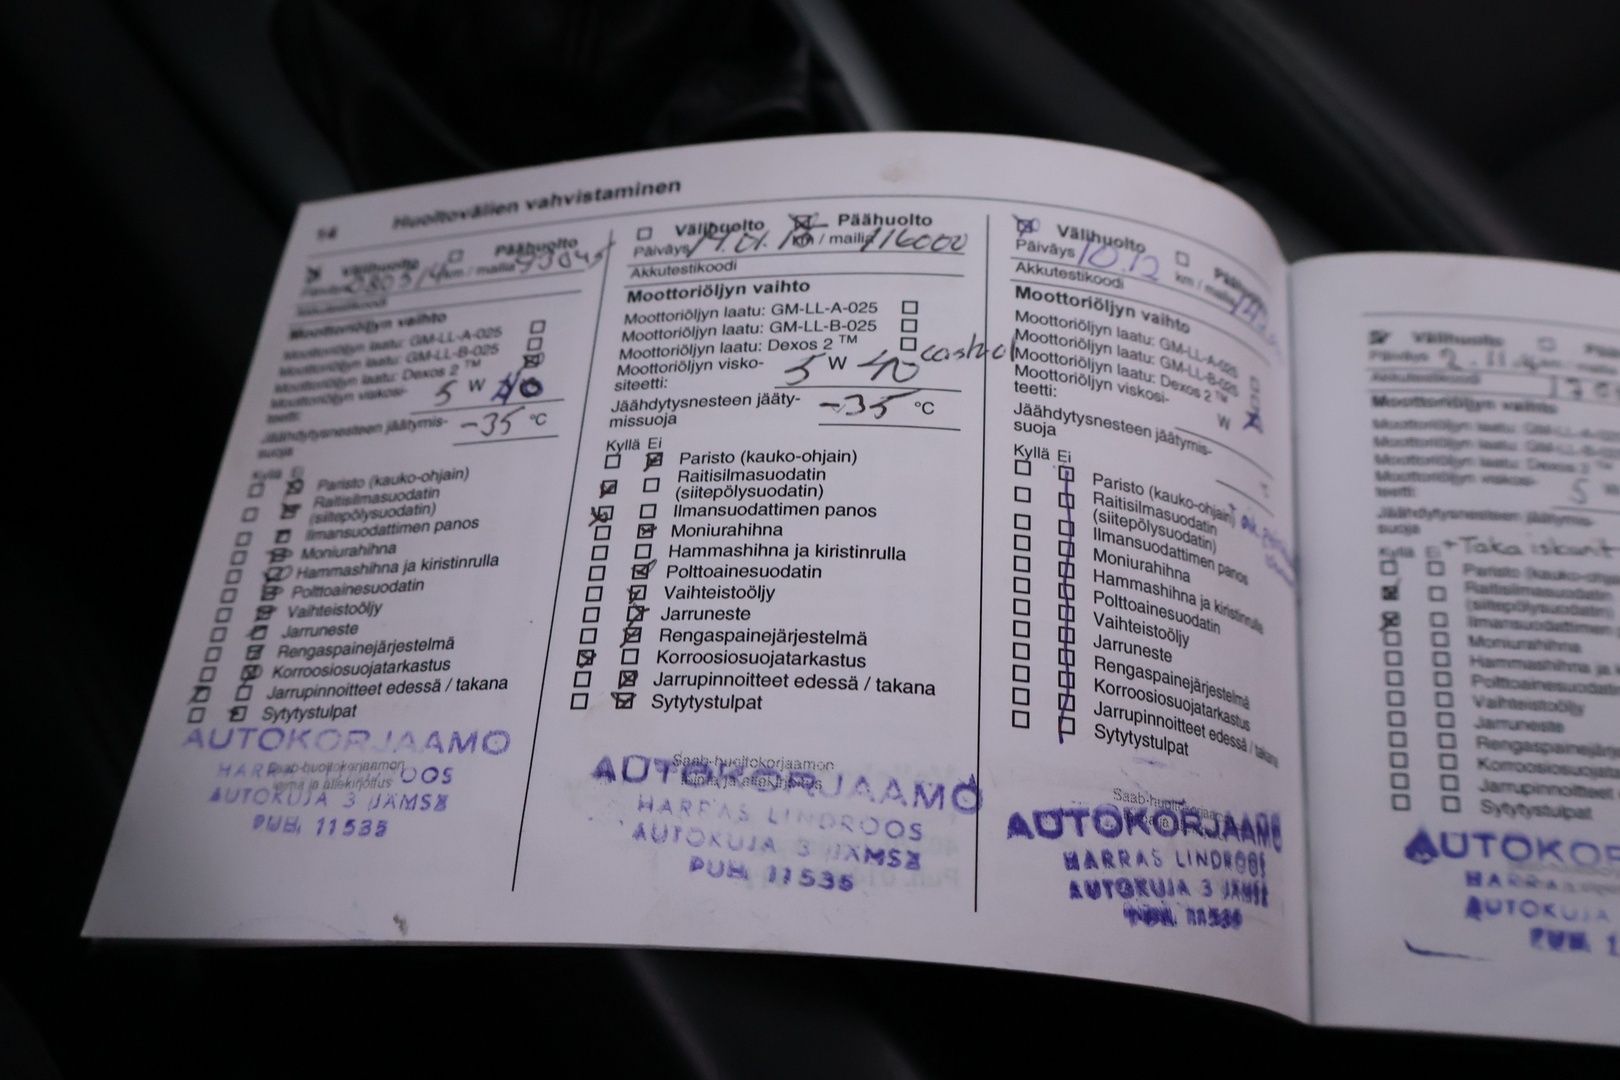 Huoltovälien vahvistaminen
Välihuolto Päähuolto
km / mailia
Akkutestikoodi
Moottoriöljyn vaihto
Moottoriöljyn laatu: GM-LL-A-025
Moottoriöljyn laatu: GM-LL-B-025
Moottoriöljyn laatu: Dexos 2 ™
Moottoriöljyn viskosi-
teetti: 5 W 40
Jäähdytysnesteen jäätymis-
suoja -35 °C
Kyllä Ei
Paristo (kauko-ohjain)
Raitisilmasuodatin
(siitepölysuodatin)
Ilmansuodattimen panos
Moniurahihna
Hammashihna ja kiristinrulla
Polttoainesuodatin
Vaihteistoöljy
Jarruneste
Rengaspainejärjestelmä
Korroosiosuojatarkastus
Jarrupinnoitteet edessä / takana
Sytytystulpat
Saab-huoltokorjaamon
leima ja allekirjoitus
AUTOKORJAAMO
AUTOKUJA 3 JÄMSÄ
PUH. 11535
Välihuolto Päähuolto
Päiväys km / mailia 116000
Akkutestikoodi
Moottoriöljyn vaihto
Moottoriöljyn laatu: GM-LL-A-025
Moottoriöljyn laatu: GM-LL-B-025
Moottoriöljyn laatu: Dexos 2 ™
Moottoriöljyn visko-
siteetti: 5 W 40 castrol
Jäähdytysnesteen jääty-
missuoja -35 °C
Kyllä Ei
Paristo (kauko-ohjain)
Raitisilmasuodatin
(siitepölysuodatin)
Ilmansuodattimen panos
Moniurahihna
Hammashihna ja kiristinrulla
Polttoainesuodatin
Vaihteistoöljy
Jarruneste
Rengaspainejärjestelmä
Korroosiosuojatarkastus
Jarrupinnoitteet edessä / takana
Sytytystulpat
Saab-huoltokorjaamon
leima ja allekirjoitus
AUTOKORJAAMO
HARRAS LINDROOS
AUTOKUJA 3 JÄMSÄ
PUH. 11535
Välihuolto
Päiväys 10.12 km / mailia
Akkutestikoodi
Moottoriöljyn vaihto
Moottoriöljyn laatu: GM-LL-A-025
Moottoriöljyn laatu: GM-LL-B-025
Moottoriöljyn laatu: Dexos 2 ™
Moottoriöljyn viskosi-
teetti: W
Jäähdytysnesteen jäätymis-
suoja
Kyllä Ei
Paristo (kauko-ohjain)
Raitisilmasuodatin
(siitepölysuodatin)
Ilmansuodattimen panos
Moniurahihna
Hammashihna ja kiristinrulla
Polttoainesuodatin
Vaihteistoöljy
Jarruneste
Rengaspainejärjestelmä
Korroosiosuojatarkastus
Jarrupinnoitteet edessä / takana
Sytytystulpat
AUTOKORJAAMO
HARRAS LINDROOS
AUTOKUJA 3 JÄMSÄ
PUH. 11535
Välihuolto
Päiväys
Akkutestikoodi
Moottoriöljyn vaihto
Moottoriöljyn laatu:
Moottoriöljyn laatu:
Moottoriöljyn laatu:
Moottoriöljyn
teetti: 5
Jäähdytysnesteen
suoja
Kyllä Ei + Taka
Paristo
Raitisilmasuodatin
(siitepölysuodatin)
Ilmansuodattimen
Moniurahihna
Hammashihna ja
Polttoainesuodatin
Vaihteistoöljy
Jarruneste
Rengaspainejärjestelmä
Korroosiosuojatarkastus
Jarrupinnoitteet
Sytytystulpat